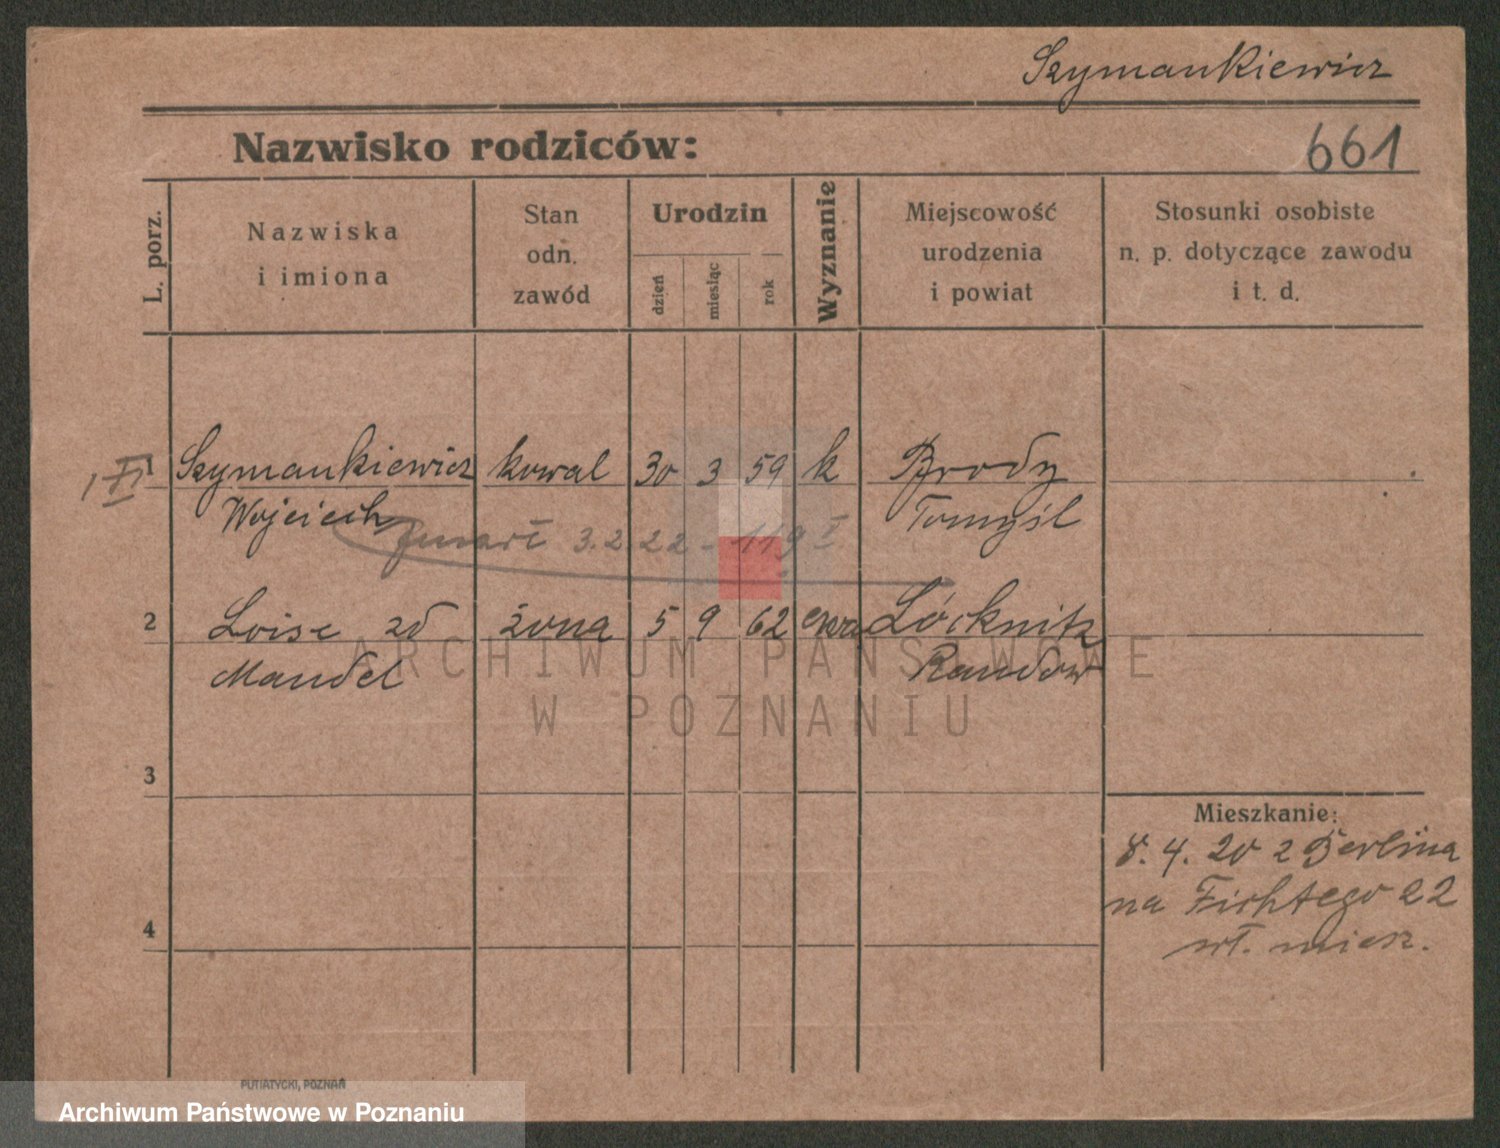 Szymankiewicz
Nazwisko rodziców:
661
L. porz.
Nazwiska
i imiona
Stan
odn.
zawód
Urodzin
dzień
miesiąc
rok
Wyznanie
Miejscowość
urodzenia
i powiat
Stosunki osobiste
n. p. dotyczące zawodu
i t. d.
1 Szymankiewicz kowal 30 3 59 k Brody
Wojciech Tomyśl
zmarł 3.2.22 - 119 I
2 Loise zd żona 5 9 62 ewa Löcknitz
Mandel Randow
ARCHIWUM PAŃSTWOWE
W POZNANIU
3
Mieszkanie:
8. 4. 20 z Berlina
na Fichtego 22
wł. miesz.
4
PUTIATYCKI, POZNAŃ
Archiwum Państwowe w Poznaniu